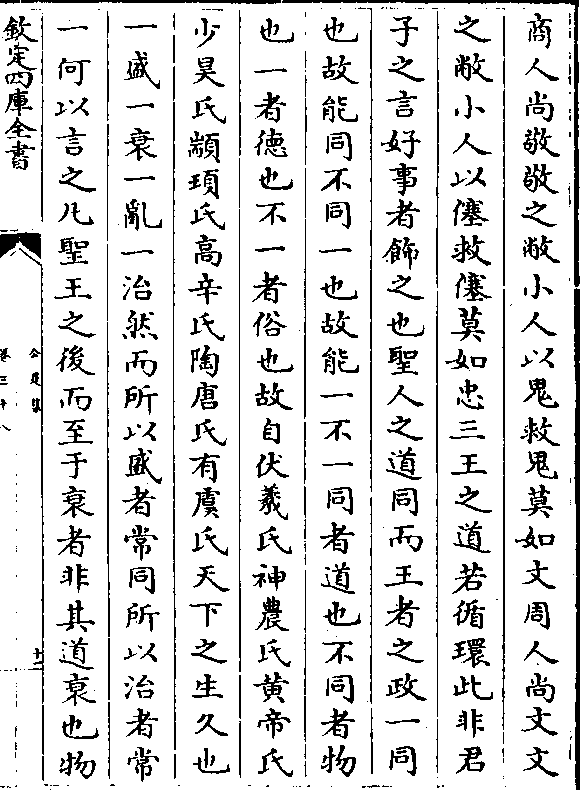 商人尚敬敬之敝小人以鬼救鬼莫如文周人尚文文
之敝小人以僿救僿莫如忠三王之道若循環此非君
子之言好事者飾之也聖人之道同而王者之政一同
也故能同不同一也故能一不一同者道也不同者物
也一者德也不一者俗也故自伏羲氏神農氏黄帝氏
少昊氏顓頊氏高辛氏陶唐氏有虞氏天下之生久也
一盛一衰一亂一治然而所以盛者常同所以治者常
一何以言之凡聖王之後而至于衰者非其道衰也物
欽定四庫全書
公是集
卷三十八